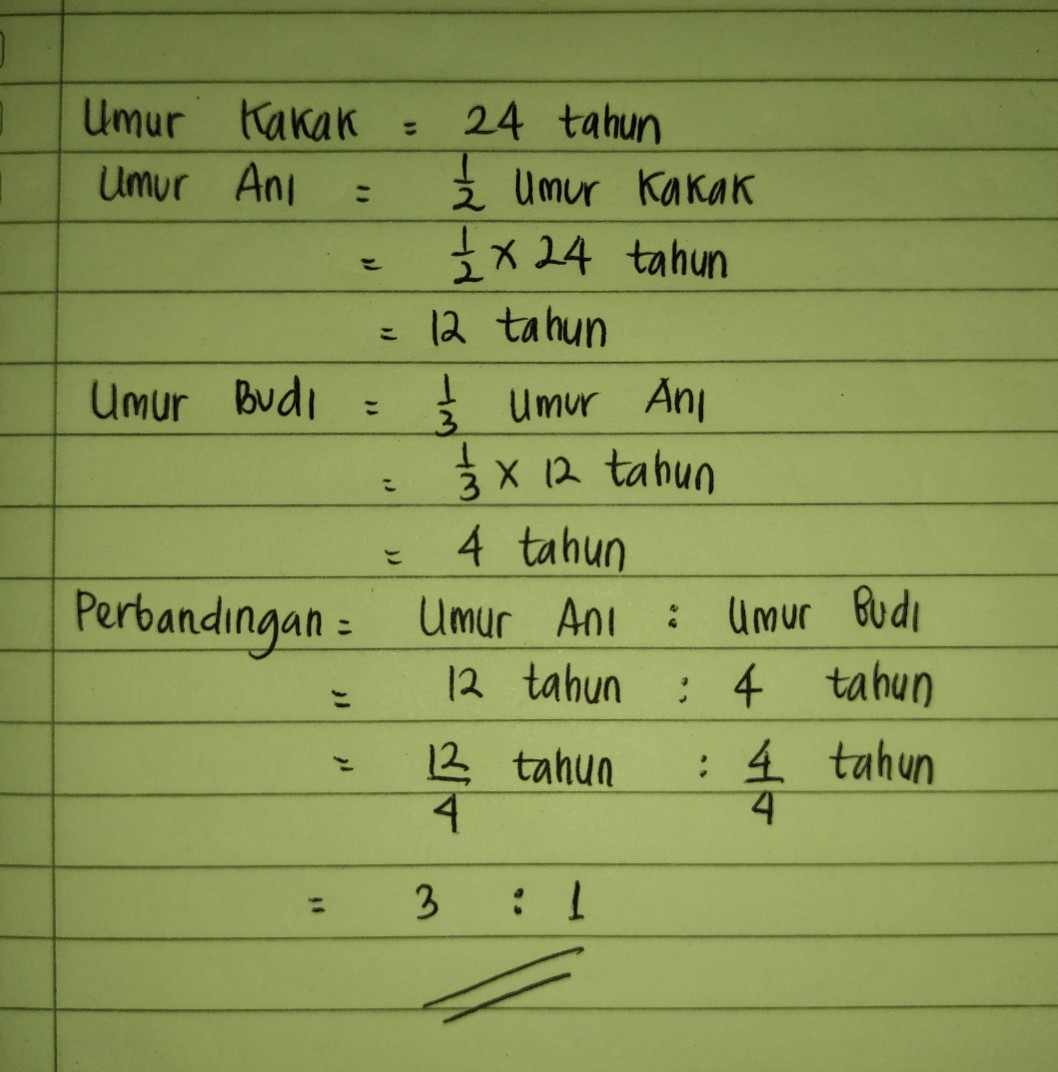 Umur Kakak = 24 tahun
Umur Ani = 1/2 Umur Kakak
= 1/2 x 24 tahun
= 12 tahun
Umur Budi = 1/3 Umur Ani
= 1/3 x 12 tahun
= 4 tahun
Perbandingan = Umur Ani : Umur Budi
= 12 tahun : 4 tahun
= 12/4 tahun : 4/4 tahun
= 3 : 1